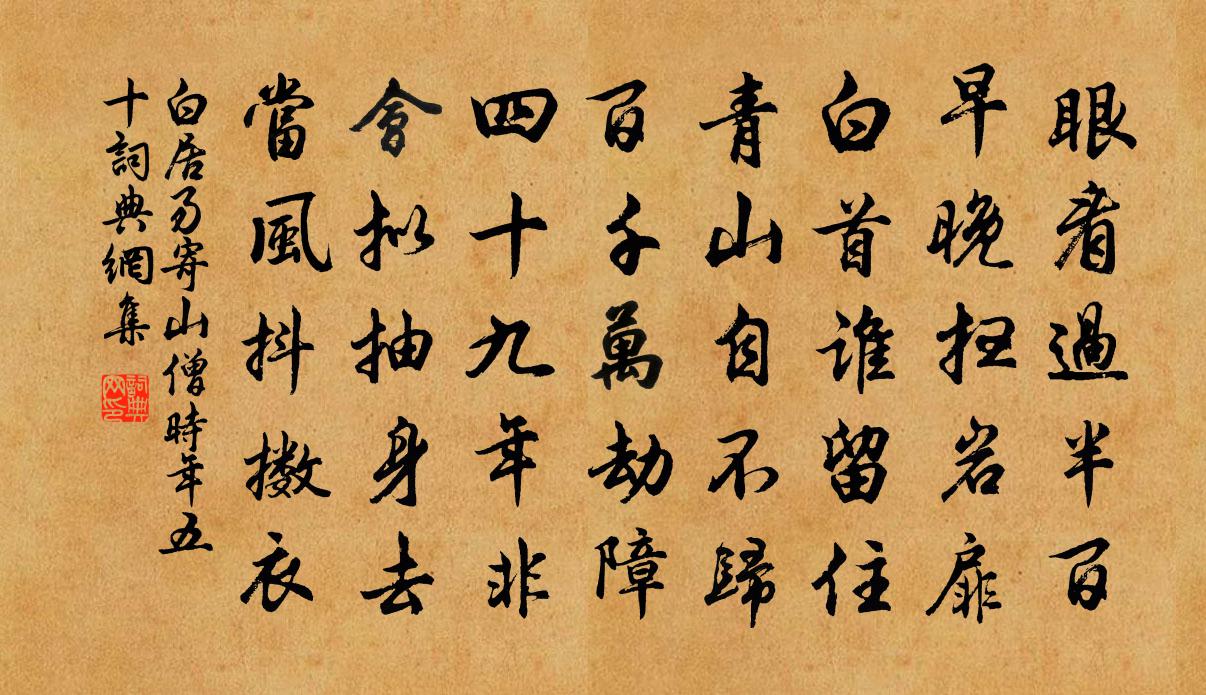 眼看過半百
早晚扫岩扉
白首誰留住
青山自不歸
百千萬劫障
四十九年非
會拟抽身去
當風抖擻衣
白居易寄山僧時年五
十詞典網集
詞典
网印